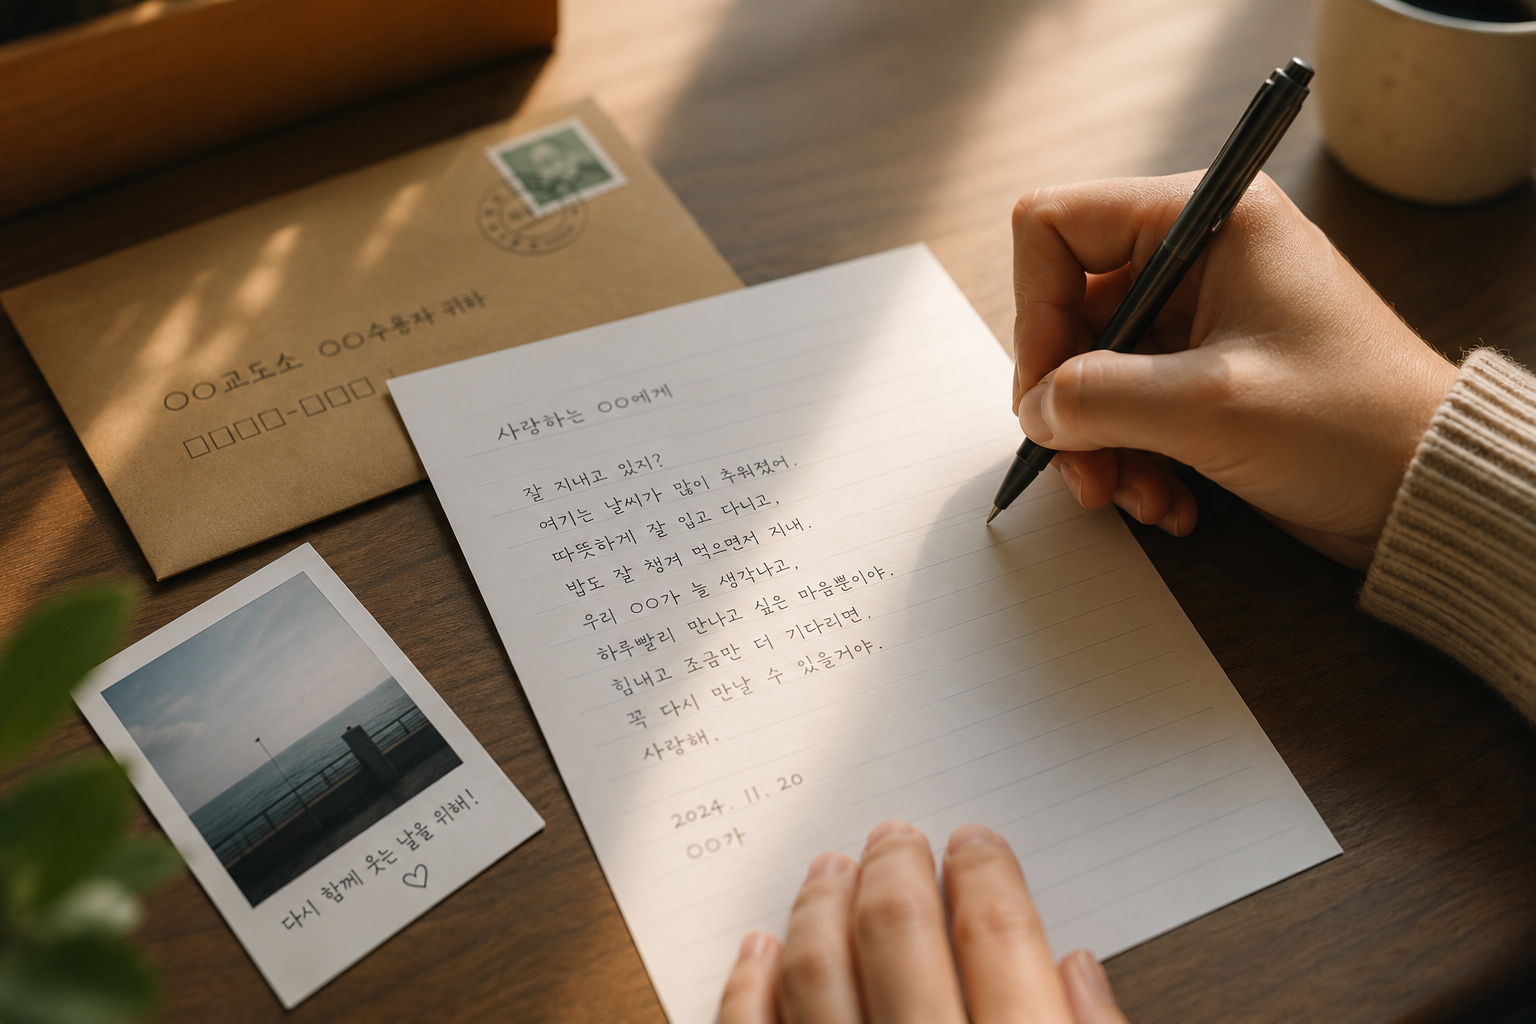 ○○교도소 ○○수용자 귀하
□□□□-□□□
사랑하는 ○○에게
잘 지내고 있지?
여기는 날씨가 많이 추워졌어.
따뜻하게 잘 입고 다니고,
밥도 잘 챙겨 먹으면서 지내.
우리 ○○가 늘 생각나고,
하루빨리 만나고 싶은 마음뿐이야.
힘내고 조금만 더 기다리면.
꼭 다시 만날 수 있을거야.
사랑해.
2024. 11. 20
○○가
다시 함께 웃는 날을 위해!
♡